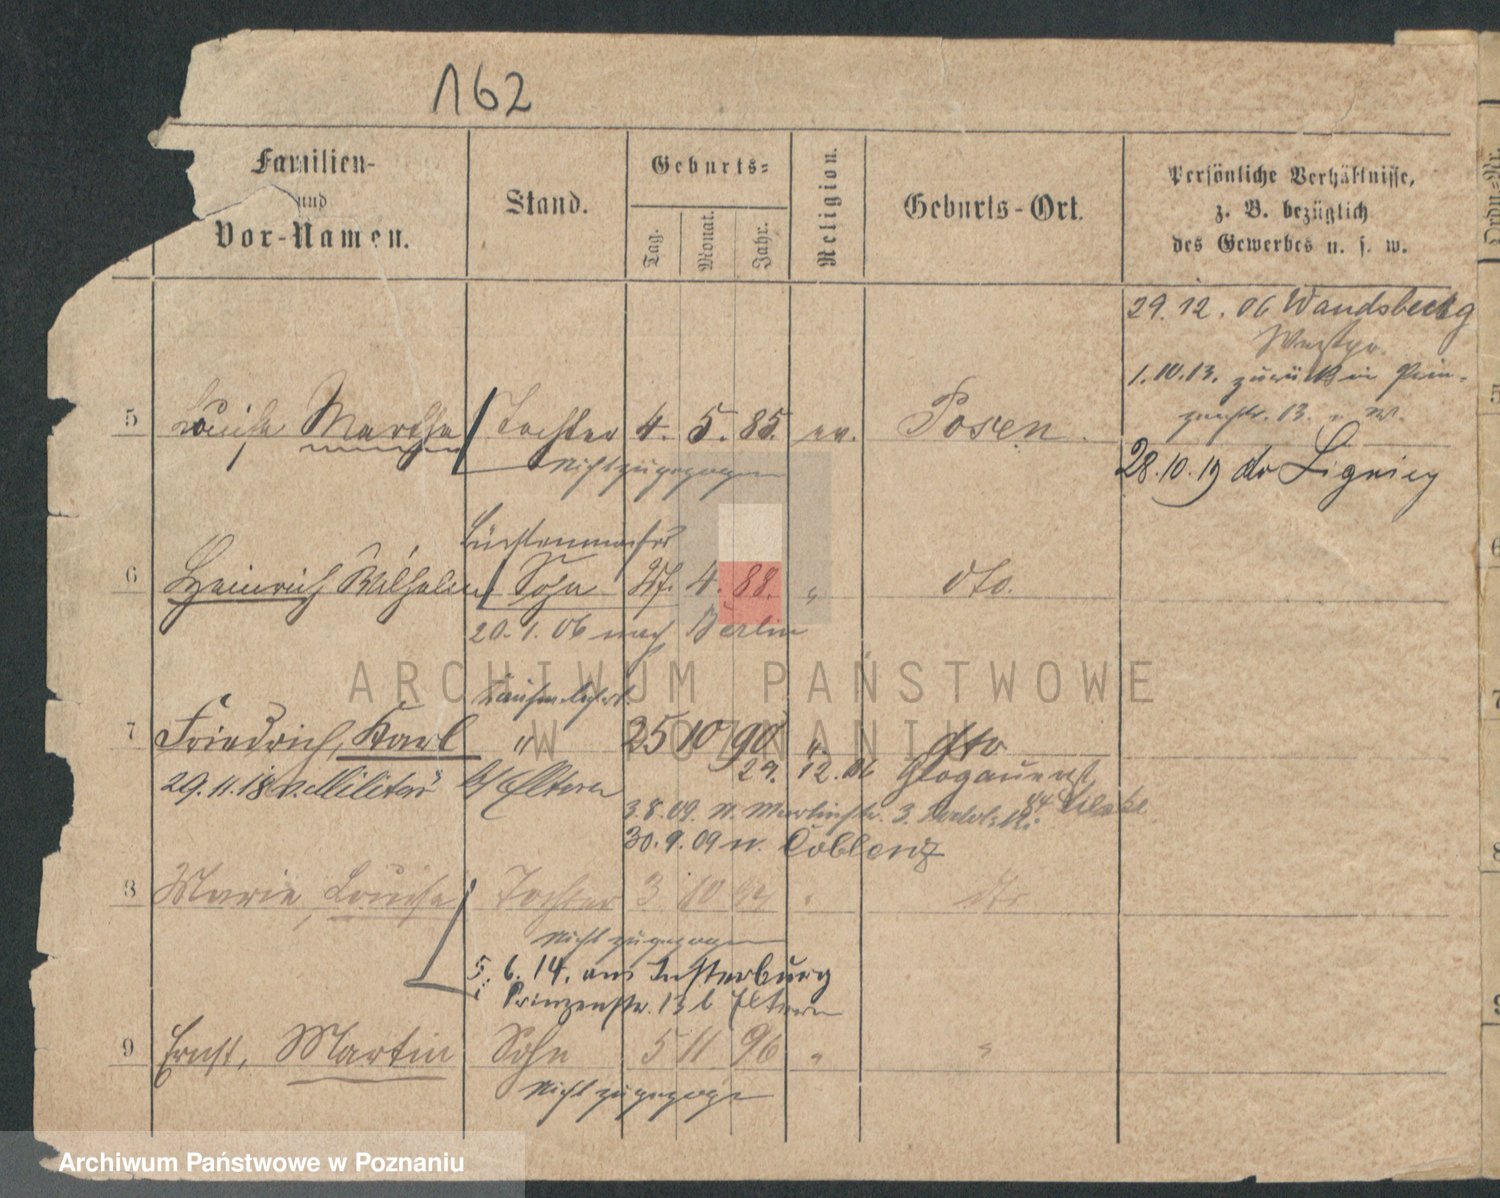 162
Familien-
und
Vor-Namen.
Stand.
Geburts-
Tag.
Monat.
Jahr.
Religion.
Geburts-Ort.
Persönliche Verhältnisse,
z. B. bezüglich
des Gewerbes u. s. w.
Ordn.-Nr.
29. 12. 06 Wandsbeck
Westpr.
1.10.13. zurück in Prin-
zenstr. 13.
5 Louise Martha Tochter 4. 5. 85. ev. Posen.
nicht zugezogen
28.10.19 do
Bürstenmacher
6 Heinrich Wilhelm Sohn 4. 88. " dto.
20. 1. 06 nach Berlin
7 Friedrich, Karl " 25 10 90 " dto
29.11.18 v. Militär b/ Eltern 29. 12. 06
3.8.09. n. Martinstr. 3.
30. 9. 09 n. Coblenz
8 Marie, Louise Tochter 3 10 " dto
nicht zugezogen
5. 6. 14. aus Insterburg
Prinzenstr. 13 b Eltern
9 Ernst, Martin Sohn 5 11 96 " "
nicht zugezogen
ARCHIWUM PAŃSTWOWE
W POZNANIU
Archiwum Państwowe w Poznaniu